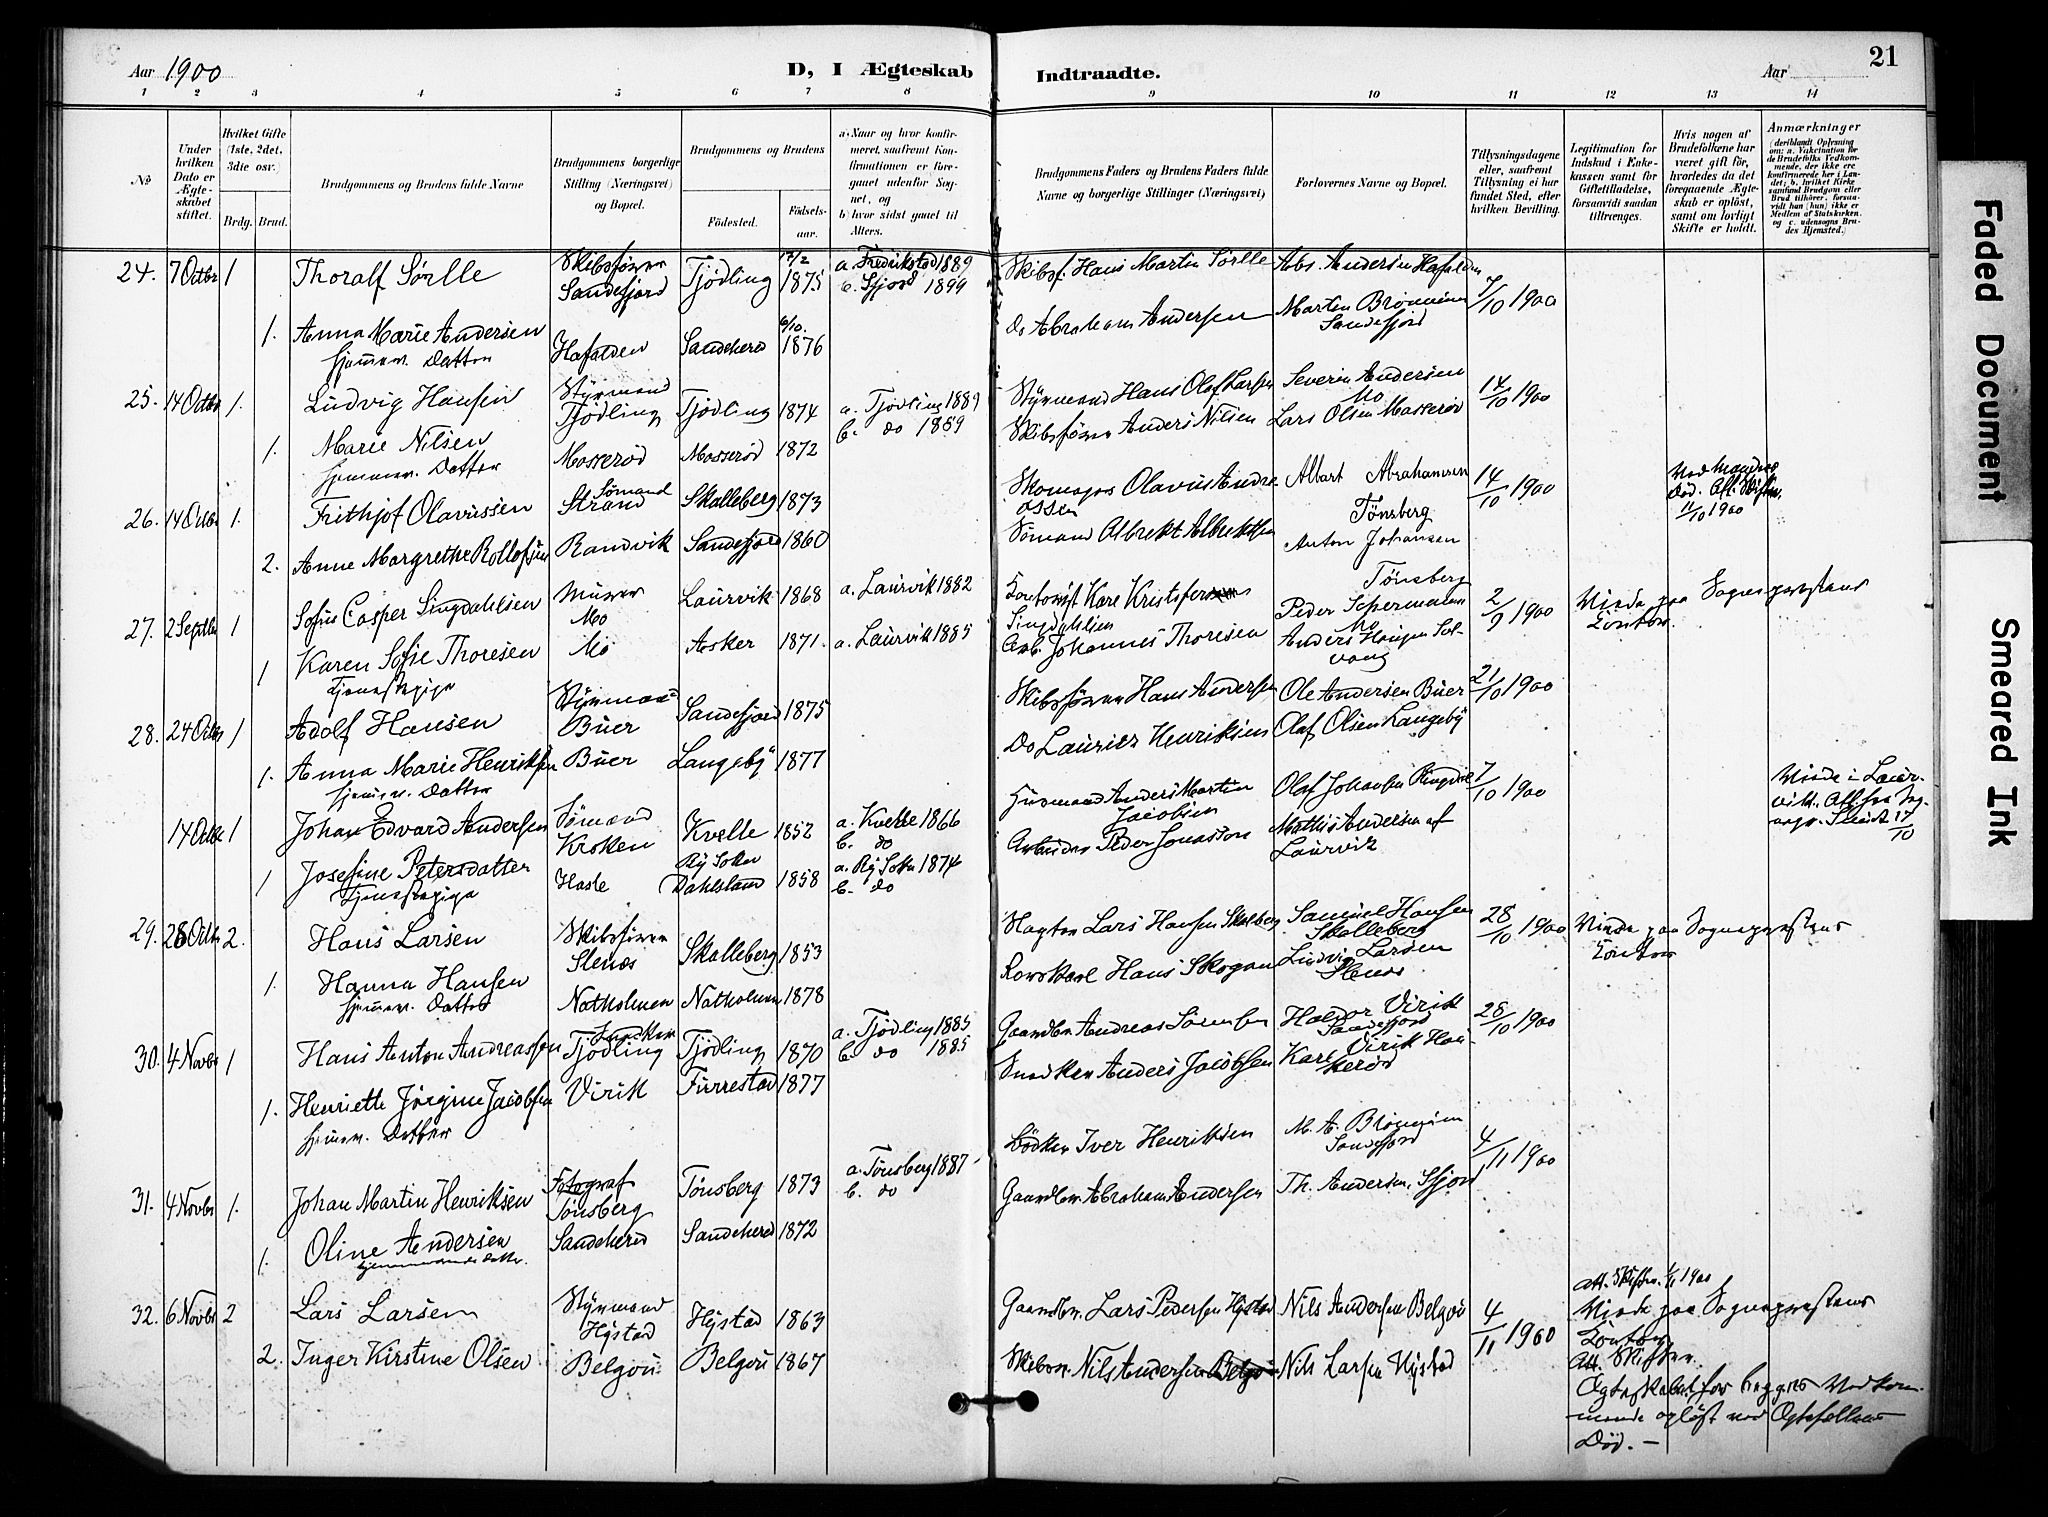 Aar 1900
D, I Ægteskab Indtraadte.
Aar
21
1 2 3 4 5 6 7 8 9 10 11 12 13 14
No
Under hvilken Dato er Ægteskabet stiftet.
Hvilket Gifte (1ste, 2det, 3die osv.)
Brdg. Brud.
Brudgommens og Brudens fulde Navne
Brudgommens borgerlige Stilling (Næringsvei) og Bopæl.
Brudgommens og Brudens
Fødested.
Fødselsaar.
a) Naar og hvor konfirmeret, saafremt Konfirmationen er foregaaet udenfor Sognet, og
b) hvor sidst gaaet til Alters.
Brudgommens Faders og Brudens Faders fulde Navne og borgerlige Stillinger (Næringsvei)
Forlovernes Navne og Bopæl.
Tillysningsdagene eller, saafremt Tillysning ei har fundet Sted, efter hvilken Bevilling.
Legitimation for Indskud i Enkekassen samt for Giftetilladelse, forsaavidt saadan tiltrænges.
Hvis nogen af Brudefolkene har været gift før, hvorledes da det foregaaende Ægteskab er opløst, samt om lovligt Skifte er holdt.
Anmærkninger (deriblandt Oplysning om: a. Vakcination for de Brudefolks Vedkommende, der ikke ere konfirmerede her i Landet; b. hvilket Kirkesamfund Brudgom eller Brud tilhører, forsaavidt han (hun) ikke er Medlem af Statskirken, og c. udensogns Brudes Hjemsted.)
24. 7 Octbr 1 Thoralf Sørlle Skibsfører Sandefjord Tjødling 12/2 1875 a. Fredrikstad 1889 b. Sfjord 1899 Skibsf. Hans Martin Sørlle Abr. Andersen Hafalden 7/10 1900
1. Anna Marie Andersen hjemmev. Datter Hafalden Sandeherd 6/10. 1876 Do Abraham Andersen Martin Brønnum Sandefjord
25. 14 Octbr 1. Ludvig Hansen Styrmand Tjødling Tjødling 1874 a. Tjødling 1889 b. do 1889 Styrmand Hans Olaf Larsen Severin Andersen Mo 14/10 1900
1. Marie Nilsen hjemmev. Datter Mosserød Mosserød 1872 Skibsfører Anders Nilsen Lars Olsen Mosserød
26. 14 Octbr 1. Frithjof Olavussen Sømand Strand Skalleberg 1873 Skomager Olavus Andreassen Albert Abrahamsen Tønsberg 14/10 1900 Ved Mandens Død. Att. Skiften. 11/10 1900
2. Anne Margrethe Rollofsen Randvik Sandefjord 1860 Sømand Albrekt Albrektsen Anton Johansen Tønsberg
27. 2 Septbr 1 Sofus Casper Singdahlsen Murer Mo Laurvik 1868 a. Laurvik 1882 Kare Kristofersen Singdahlsen Peder Mo 2/9 1900 Viede paa Sogneprestens Kontor.
1 Karen Sofie Thoresen Tjenestepige Mo Asker 1871. a. Laurvik 1885 Arb. Johannes Thoresen Anders Hansen Solvang
28. 24 Octbr 1 Adolf Hansen Styrmand Buer Sandefjord 1875 Skibsfører Hans Andersen Ole Andersen Buer 21/10 1900
1. Anna Marie Henriksen hjemmev. Datter Buer Langeby 1877 Do Lauritz Henriksen Olaf Olsen Langeby
14 Octbr 1 Johan Edvard Andersen Sømand Kroken Kvelle 1852 a. Kvelle 1866 b. do Husmand Anders Martin Jacobsen Olaf Johansen Ringdal 7/10 1900 Viede i Laurvik. Att. fra Sogneprest 17/10
1 Josefine Petersdatter Tjenestepige Hasle Ry Soken Dahlsland 1858 a. Ry Sokn 1874 b. do Arbeider Peder Jonasson Mathis Andersen af Laurvik
29. 28 Octbr 2. Hans Larsen Skibsfører Stenes Skalleberg 1853 Lars Hansen Skalleberg Samuel Hansen Skalleberg 28/10 1900 Viede paa Sogneprestens Kontor
1. Hanna Hansen hjemmev. Datter Natholmen Natholmen 1878 Hans Skogan Ludvig Larsen Stenes
30. 4 Novbr 1 Hans Anton Andreassen Snedker Tjødling Tjødling 1870 a. Tjødling 1885 b. do 1885 Gaardbr Andreas Sørensen Halvor Virik Sandefjord 28/10 1900
1. Henriette Jørgine Jacobsen hjemmev. Datter Virik Furrestad 1877 Snedker Anders Jacobsen Karl Virik Haukerød
31. 4 Novbr 1. Johan Martin Henriksen Fotograf Tønsberg Tønsberg 1873 a. Tønsberg 1887 b. do Bødker Iver Henriksen M. A. Brønnum Sandefjord 4/11 1900
1. Oline Andersen hjemmeværende Datter. Sandeherd Sandeherd 1872 Gaardbr. Abraham Andersen Th. Andersen, Sfjord
32. 6 Novbr 2 Lars Larsen Styrmand Hystad Hystad 1863 Gaardbr. Lars Pedersen Hystad Nils Andersen Belgau 4/11 1900 Att. Skiften. 1/11 1900 Viede paa Sogneprestens Kontor
2. Inger Kirstine Olsen Belgau Belgau 1867 Nils Andersen Belgau Nils Larsen Hystad Att. Skiften. Ægteskabet for begges Vedkommende opløst ved Ægtefællens Død. —
Faded Document
Smeared Ink